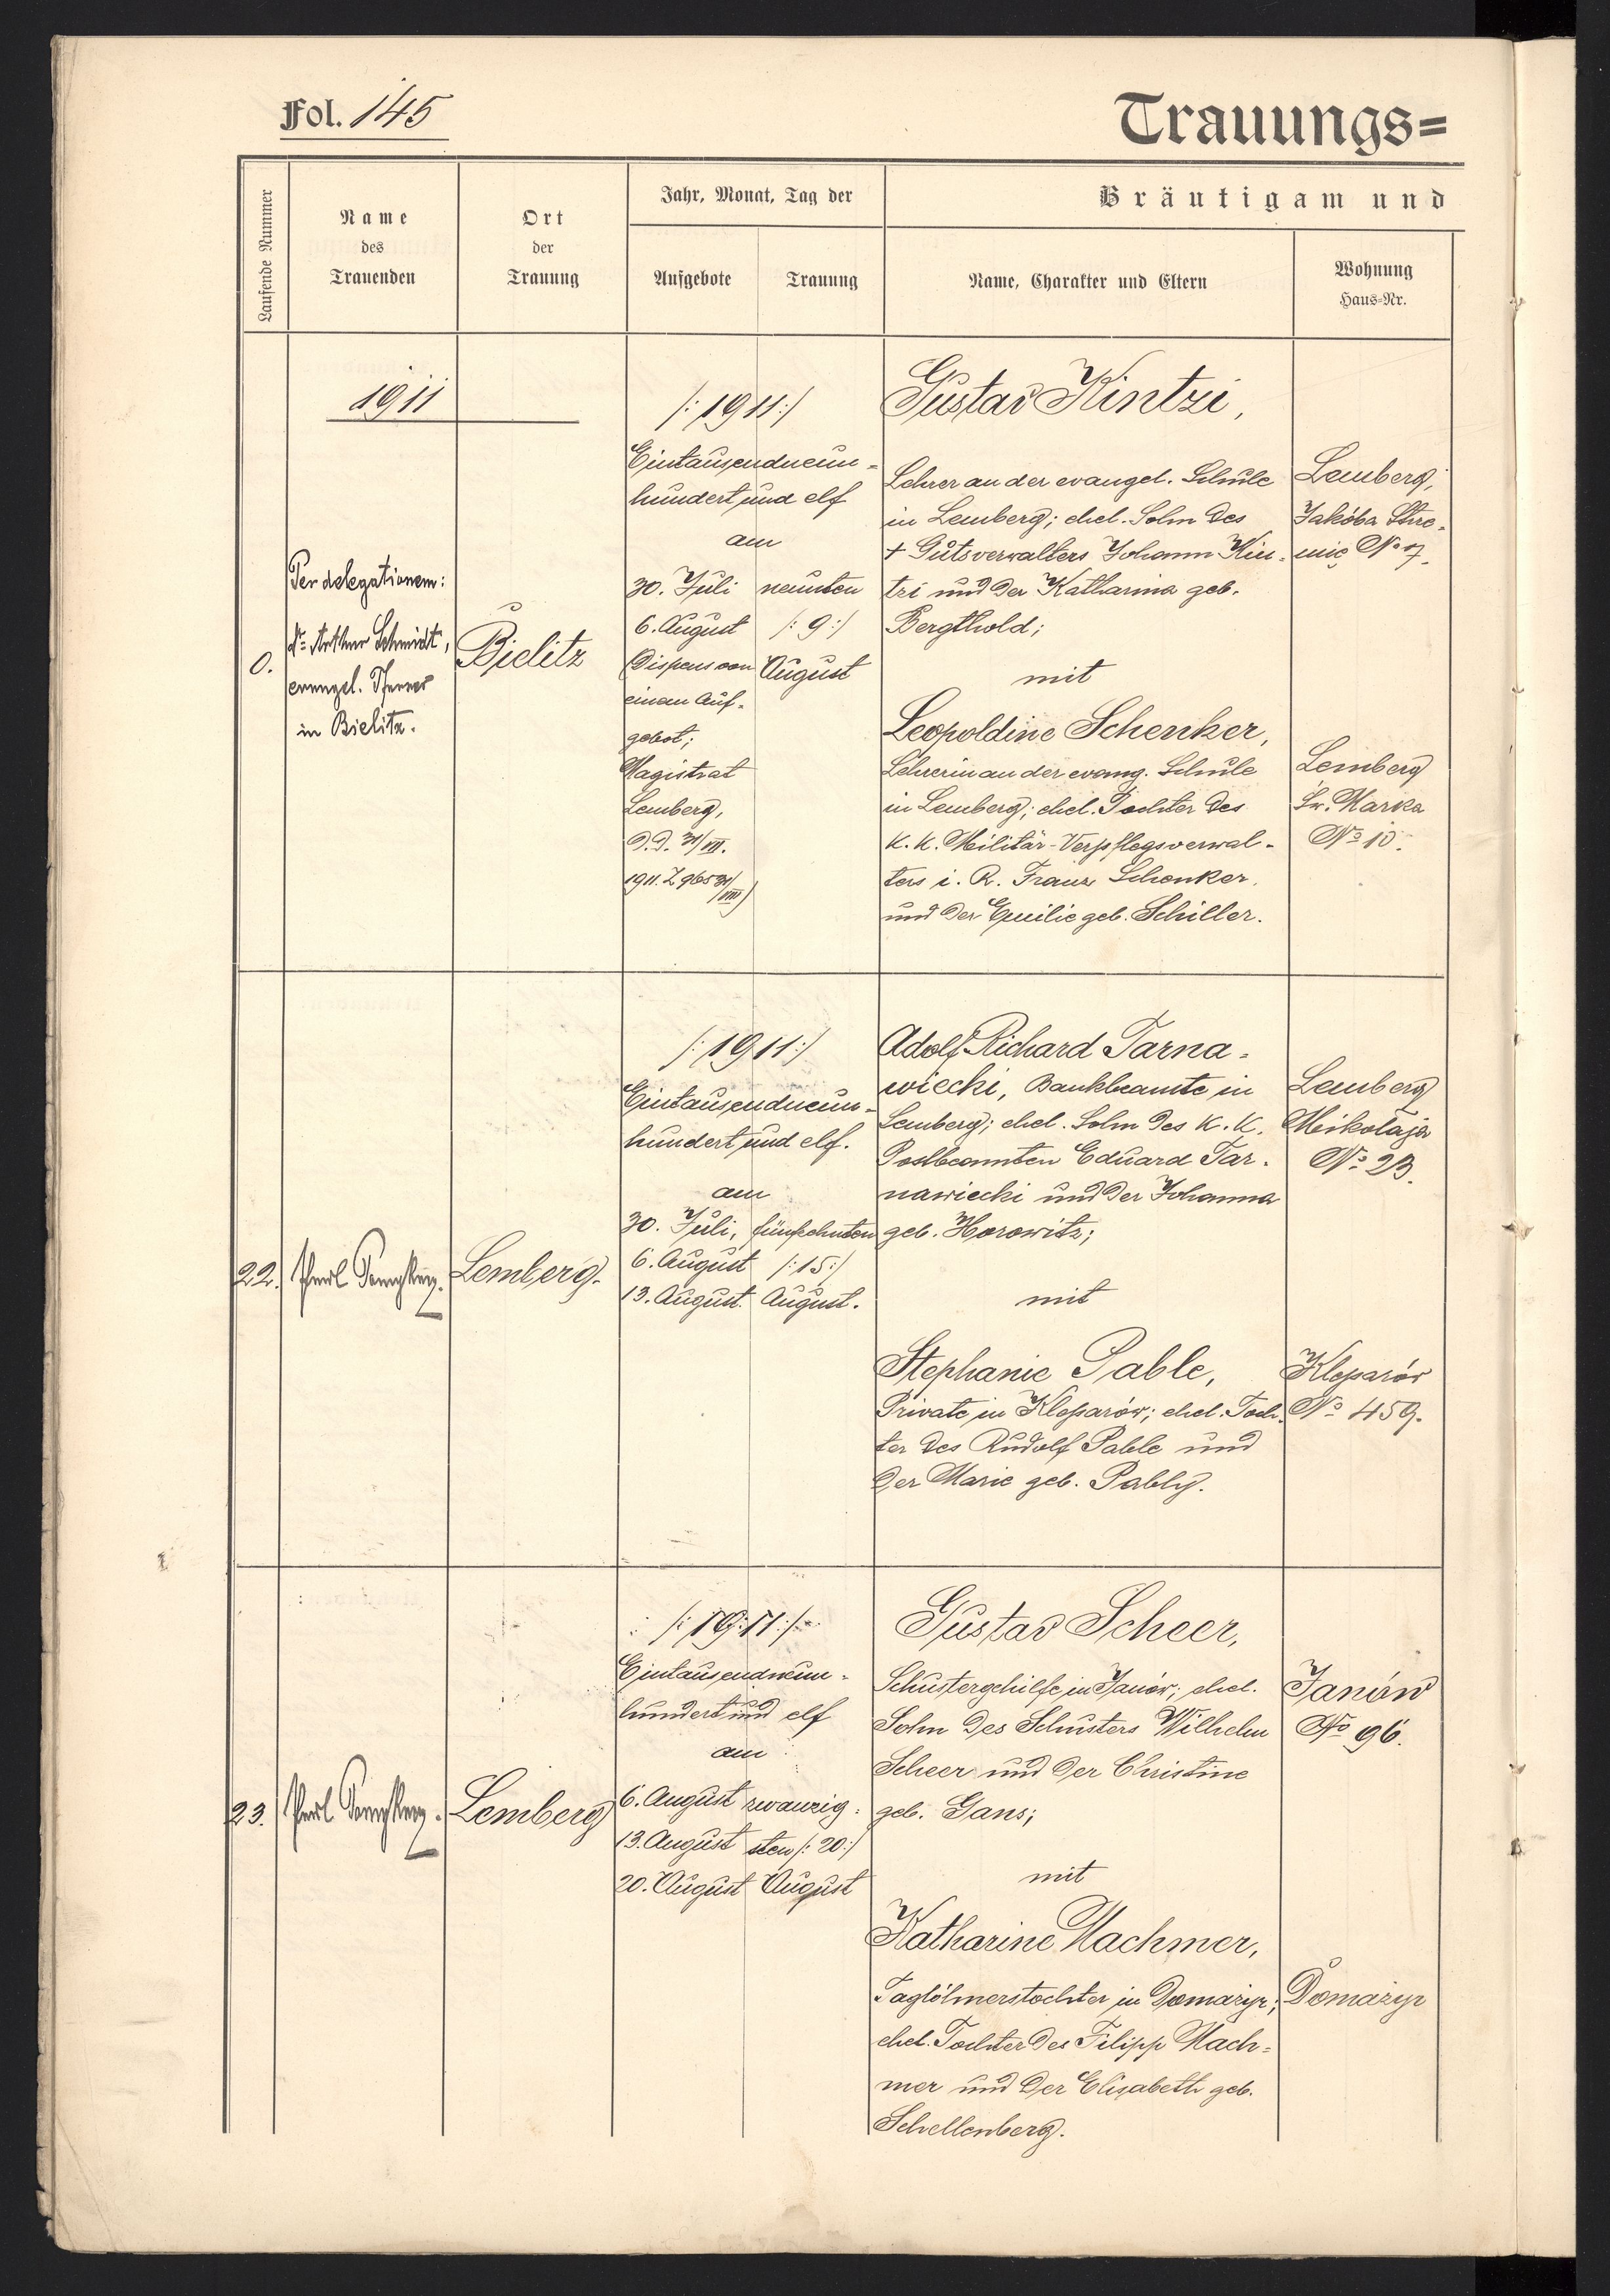 Fol. 145
Trauungs=
Laufende Nummer
Name
des
Trauenden
Ort
der
Trauung
Jahr, Monat, Tag der
Aufgebote
Trauung
Bräutigam und
Name, Charakter und Eltern
Wohnung
Haus-Nr.
1911
0.
Per delegationem:
Dr. Arthur Schmidt,
evangel. Pfarrer
in Bielitz.
Bielitz
/: 1911 :/
Eintausendneun=
hundert und elf
am
30. Juli
6. August
(Dispens von
einem Auf-
gebot;
Magistrat
Lemberg,
d.d. 31/VII.
1911. Z 96531/VIII)
neunten
/: 9 :/
August
Gustav Kintzi,
Lehrer an der evangel. Schule
in Lemberg; ehel. Sohn des
+ Gutsverwalters Johann Kin-
tzi und der Katharina geb.
Bergthold;
mit
Leopoldine Schenker,
Lehrerin an der evang. Schule
in Lemberg; ehel. Tochter des
K. K. Militär-Verpflegsverwal-
ters i. R. Franz Schenker
und der Emilie geb. Schiller.
Lemberg,
Jakóba Stre-
mię No 7.
Lemberg
Św. Marka
No 10.
22.
Lemberg.
/: 1911 :/
Eintausendneun-
hundert und elf.
am
30. Juli,
6. August
13. August.
fünfzehnten
/: 15 :/
August.
Adolf Richard Tarna-
wiecki, Bankbeamte in
Lemberg; ehel. Sohn des K. K.
Postbeamten Eduard Tar-
nawiecki und der Johanna
geb. Horowitz;
mit
Stephanie Pable,
Private in Kleparów; ehel. Toch-
ter des Rudolf Pable und
der Marie geb. Pably.
Lemberg
Mikołaja
No 23.
Kleparów
No 459.
23.
Lemberg
/: 1911 :/
Eintausendneun-
hundert und elf
am
6. August
13. August
20. August
zwanzig-
sten /: 20 :/
August
Gustav Scheer,
Schustergehilfe in Janów; ehel.
Sohn des Schusters Wilhelm
Scheer und der Christine
geb. Gans;
mit
Katharine Machmer,
Taglöhnerstochter in Domażyr;
ehel. Tochter des Filipp Mach-
mer und der Elisabeth geb.
Schellenberg.
Janów
No 96.
Domażyr